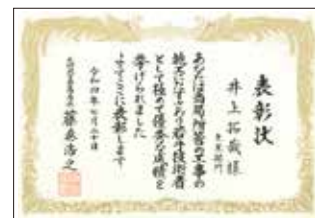 表彰状
井上拓哉様
あなたは当局所管の工事の
施工にあたり若手技術者
として極めて優秀な成績を
挙げられました
よってここに表彰します
令和四年七月二十日
藤巻浩之